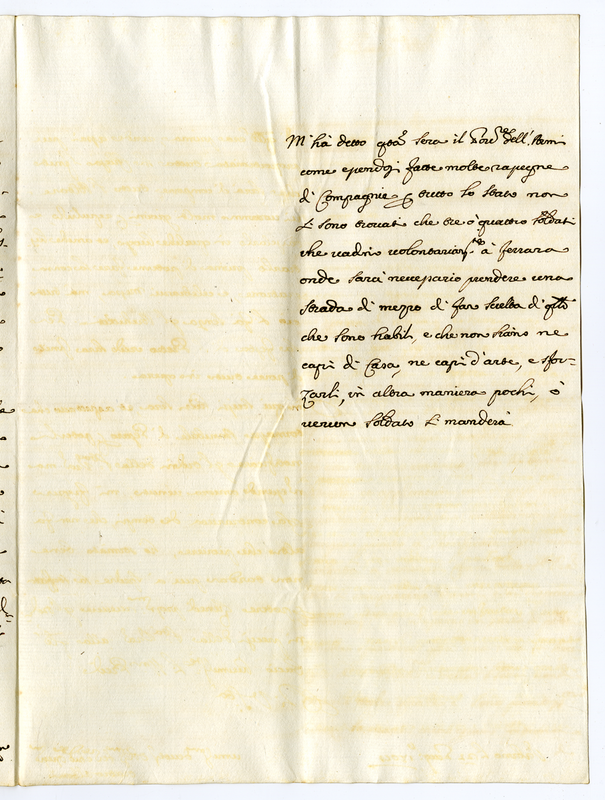 M'hà detto qta sera il Gov.re dell'Armi
come essendosi fatte molte rassegne
di Compagnie p tutto lo stato non
si sono trovati che tre ò quattro soldati
che vadino volontariam.te à Ferrara
onde sarà necessario prendere una
strada di mezzo di far scelta di qlli
che sono habili, e che non siano ne
capi di Casa, ne capi d'arte, e sfor-
zarli, in altra maniera pochi, ò
verun soldato si manderà